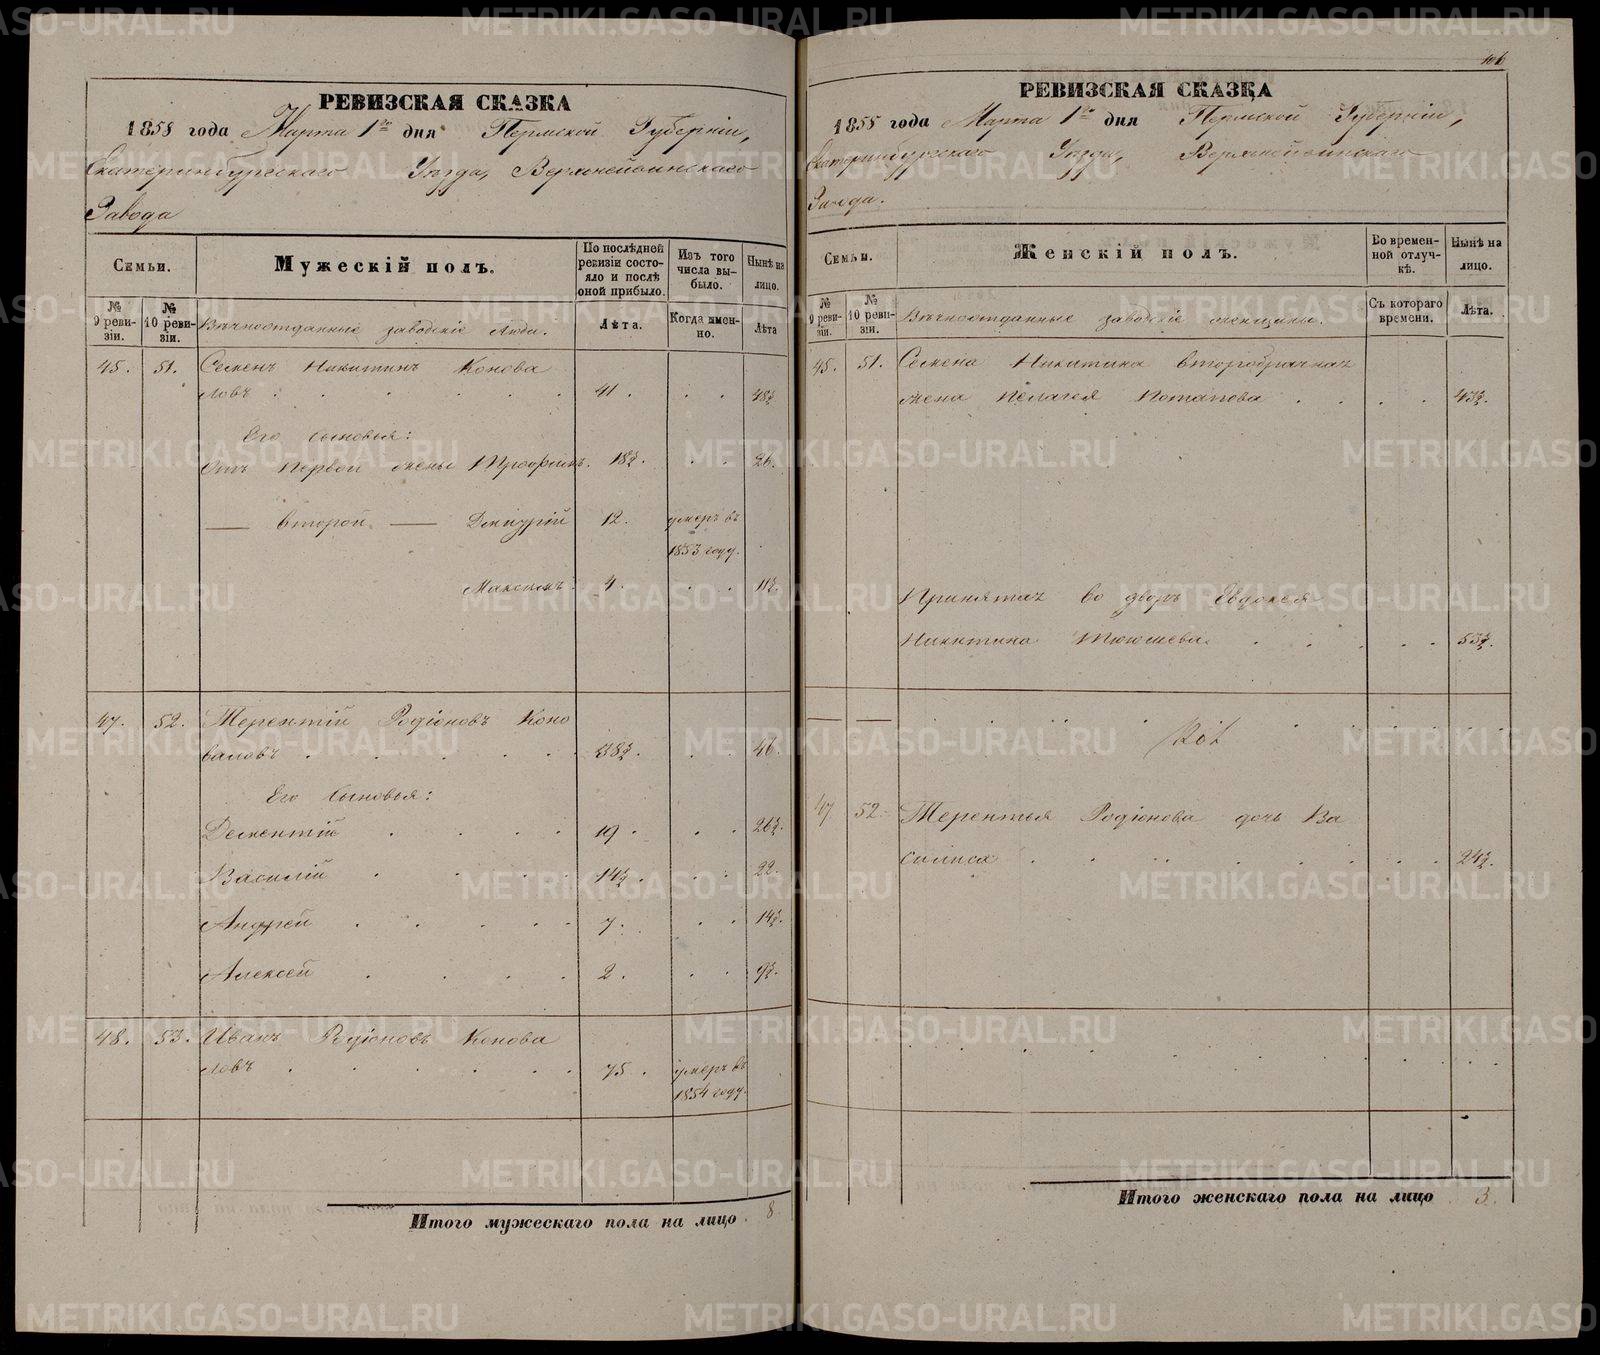 РЕВИЗСКАЯ СКАЗКА
1858 года Марта 1го дня Пермской Губерніи,
Екатеринбургскаго Уѣзда, Верхнейвинскаго
Завода
Семьи.
Мужескій полъ.
По послѣдней ревизіи состояло и послѣ оной прибыло.
Изъ того числа выбыло.
Нынѣ на лицо.
№ 9 ревизіи.
№ 10 ревизіи.
Вѣчноотданные заводскіе люди.
Лѣта.
Когда именно.
Лѣта
45. 51. Семенъ Никитинъ Конова
ловъ 41. 48½
Его сыновья:
Отъ первой жены Трофимъ. 18½. 26.
— второй — Дмитрій 12. умеръ въ
1853 году.
Максимъ 4. 11½
47. 52. Терентій Родіоновъ Коно
валовъ 38½ 46.
Его сыновья:
Дементій 19. 26½.
Василій 14½. 22.
Андрей 7. 14½.
Алексей 2. 9½.
48. 53. Иванъ Родіоновъ Конова
ловъ 75. умеръ въ
1854 году.
Итого мужескаго пола на лицо 8
106
РЕВИЗСКАЯ СКАЗКА
1858 года Марта 1го дня Пермской Губерніи,
Екатеринбургскаго Уѣзда, Верхнейвинскаго
Завода.
Семьи.
Женскій полъ.
Во временной отлучкѣ.
Нынѣ на лицо.
№ 9 ревизіи.
№ 10 ревизіи.
Вѣчноотданные заводскіе женщины.
Съ котораго времени.
Лѣта.
45. 51. Семена Никитина второбрачная
жена Пелагея Потапова 43½.
Принятая во дворъ Евдокея
Никитина 53½.
47 52. Терентья Родіонова дочь Ва
силиса 24½.
Итого женскаго пола на лицо 3.
METRIKI.GASO-URAL.RU